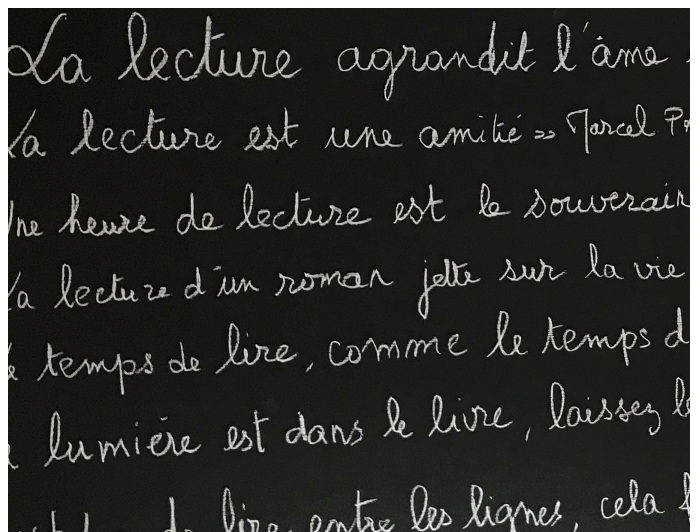 La lecture agrandit l'âme
La lecture est une amitié » Marcel
Une heure de lecture est le souverain
La lecture d'un roman jette sur la vie
temps de lire, comme le temps d
lumière est dans le livre, laissez
de lire entre les lignes, cela